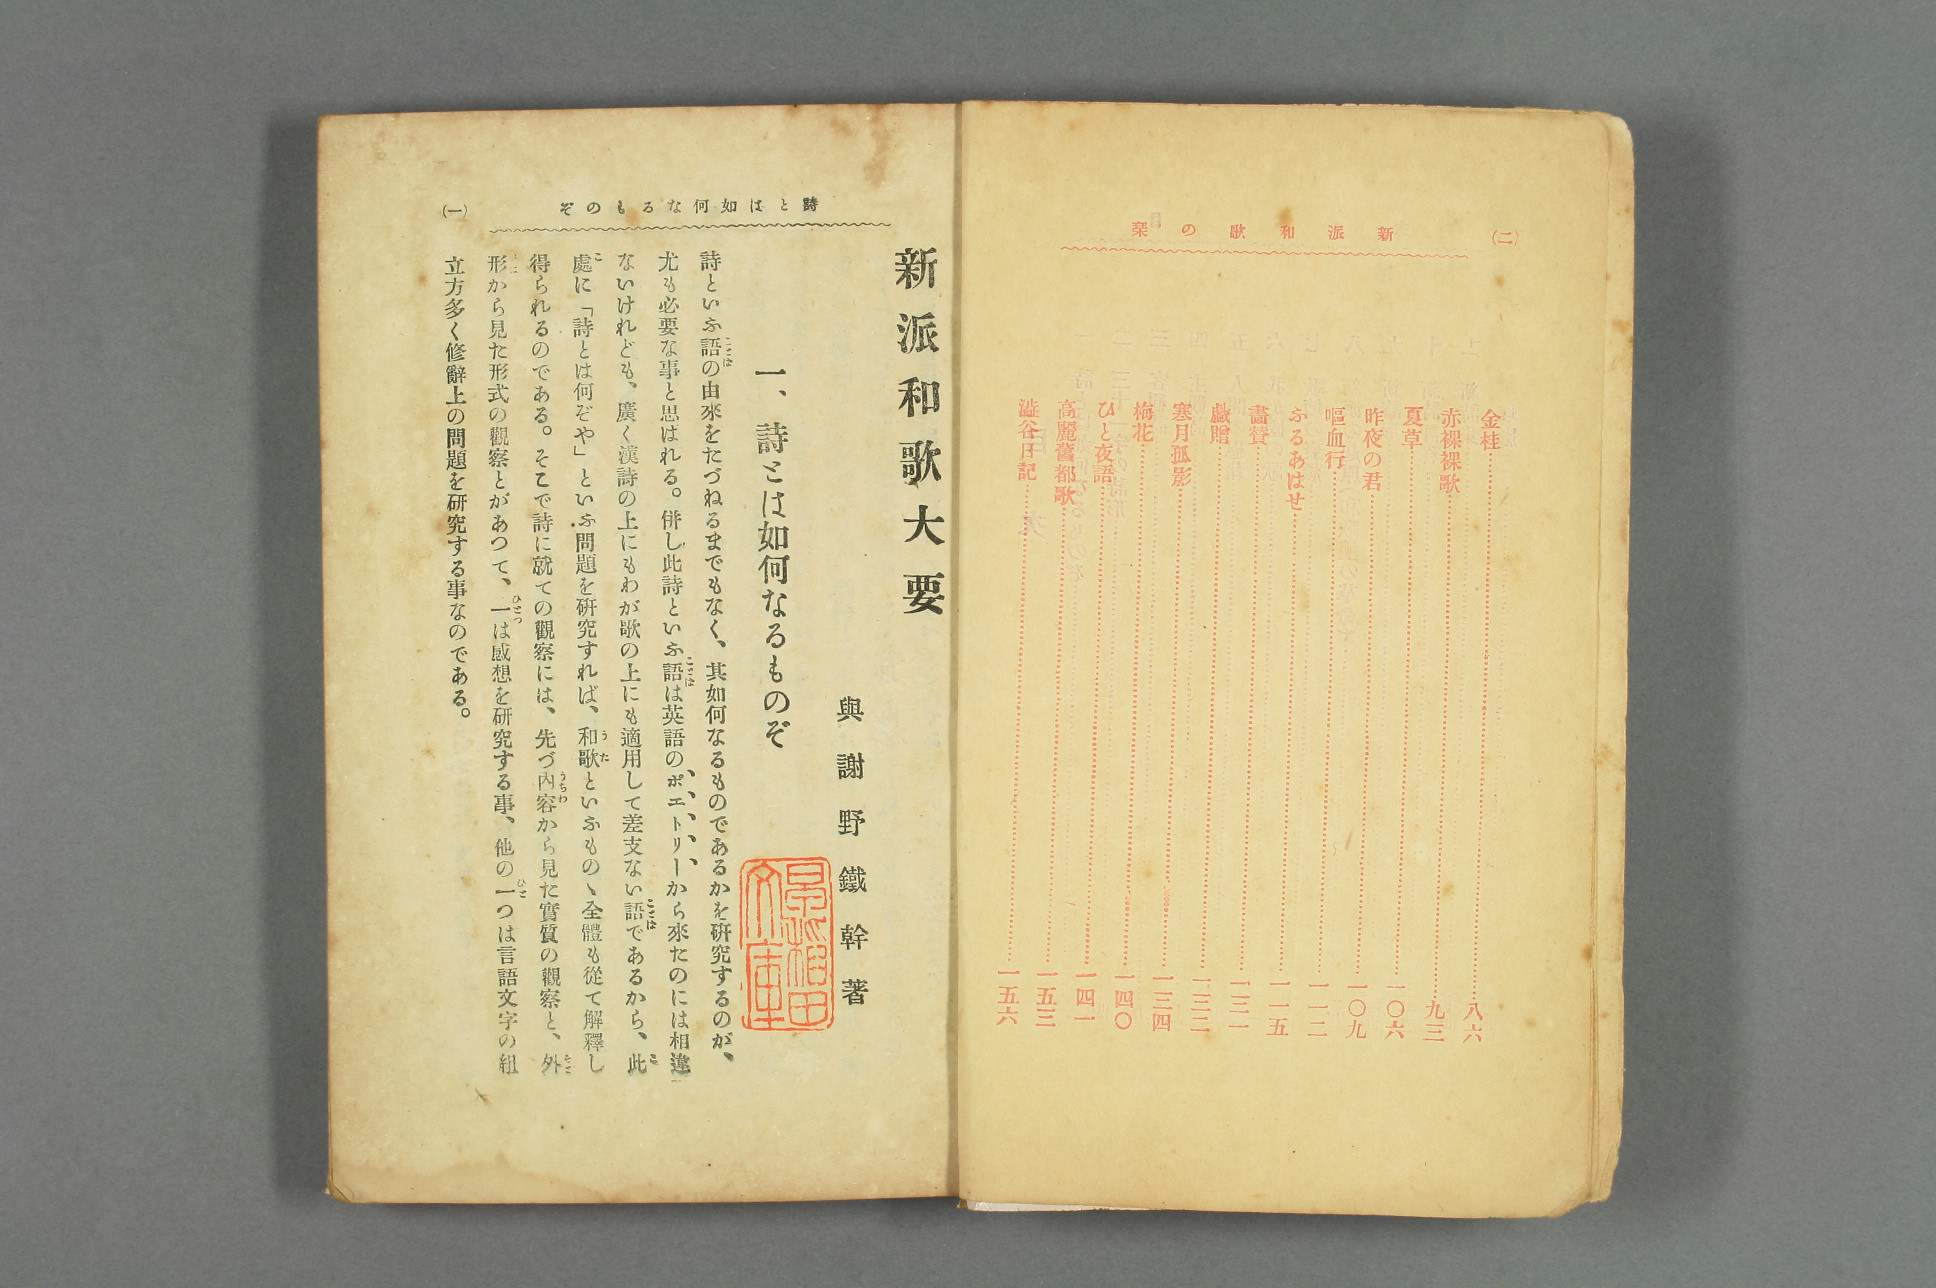 (二)
新派和歌の栞
金桂……八六
赤裸裸歌……九三
夏草……一〇六
昨夜の君……一〇九
嘔血行……一一二
ふるあはせ……一一五
畵賛……一三一
戯贈……一三二
寒月孤影……一三四
梅花……一四〇
ひと夜語……一四一
高麗舊都歌……一五三
澁谷日記……一五六
詩とは如何なるものぞ
(一)
新派和歌大要
與謝野鐵幹著
一、詩とは如何なるものぞ
詩といふ語の由來をたづねるまでもなく、其如何なるものであるかを研究するのが、
尤も必要な事と思はれる。併し此詩といふ語は英語のポエトリーから來たのには相違
ないけれども、廣く漢詩の上にもわが歌の上にも適用して差支ない語であるから、此
處に「詩とは何ぞや」といふ問題を研究すれば、和歌といふもの丶全體も從て解釋し
得られるのである。そこで詩に就ての觀察には、先づ内容から見た實質の觀察と、外
形から見た形式の觀察とがあつて、一は感想を研究する事、他の一つは言語文字の組
立方多く修辭上の問題を研究する事なのである。